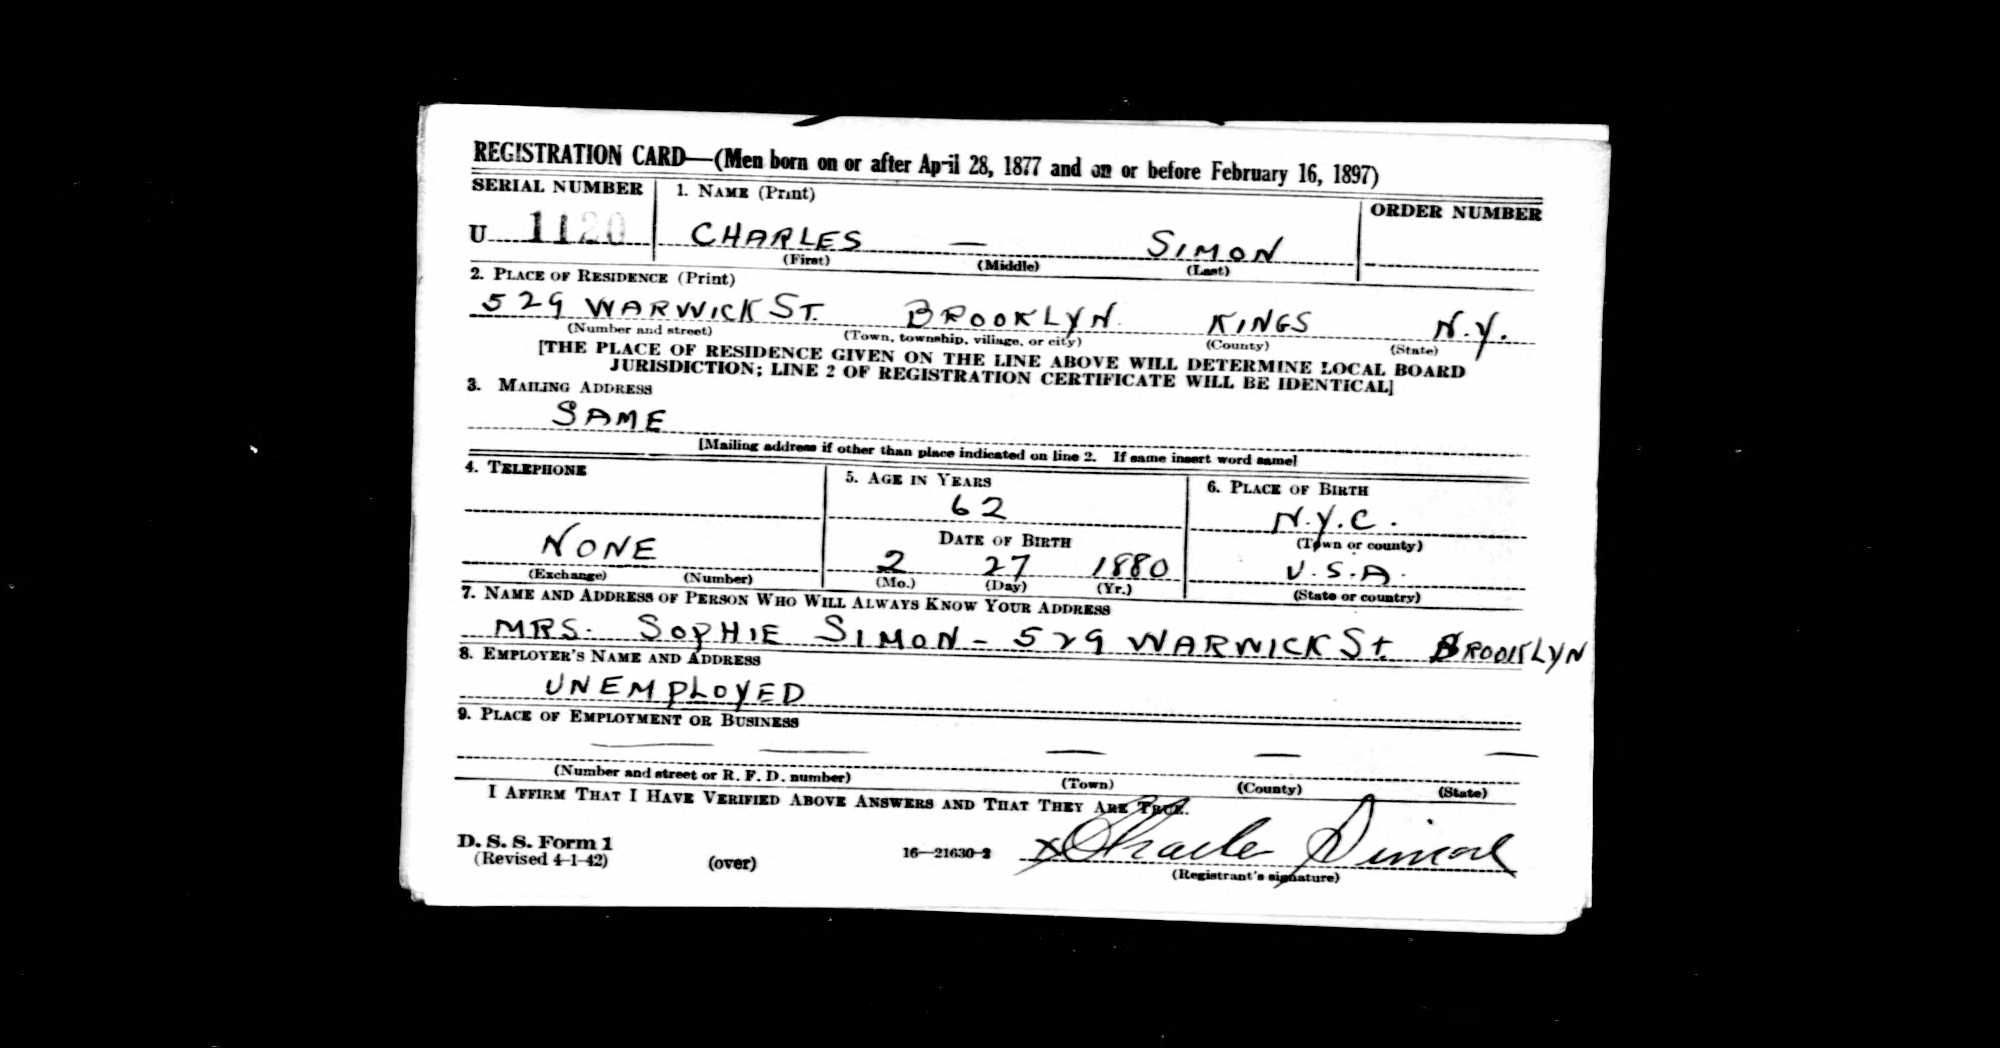 REGISTRATION CARD—(Men born on or after April 28, 1877 and on or before February 16, 1897)
SERIAL NUMBER
1. NAME (Print)
ORDER NUMBER
U 1120
CHARLES — SIMON
(First) (Middle) (Last)
2. PLACE OF RESIDENCE (Print)
529 WARWICK ST. BROOKLYN KINGS N.Y.
(Number and street) (Town, township, village, or city) (County) (State)
[THE PLACE OF RESIDENCE GIVEN ON THE LINE ABOVE WILL DETERMINE LOCAL BOARD
JURISDICTION; LINE 2 OF REGISTRATION CERTIFICATE WILL BE IDENTICAL]
3. MAILING ADDRESS
SAME
[Mailing address if other than place indicated on line 2. If same insert word same]
4. TELEPHONE
NONE
(Exchange) (Number)
5. AGE IN YEARS
62
DATE OF BIRTH
2 27 1880
(Mo.) (Day) (Yr.)
6. PLACE OF BIRTH
N.Y.C.
(Town or county)
U.S.A.
(State or country)
7. NAME AND ADDRESS OF PERSON WHO WILL ALWAYS KNOW YOUR ADDRESS
MRS. SOPHIE SIMON - 529 WARWICK ST. BROOKLYN
8. EMPLOYER'S NAME AND ADDRESS
UNEMPLOYED
9. PLACE OF EMPLOYMENT OR BUSINESS
— — — — —
(Number and street or R. F. D. number) (Town) (County) (State)
I AFFIRM THAT I HAVE VERIFIED ABOVE ANSWERS AND THAT THEY ARE TRUE.
D. S. S. Form 1
(Revised 4-1-42)
(over)
16—21630-2
x Charles Simon
(Registrant's signature)